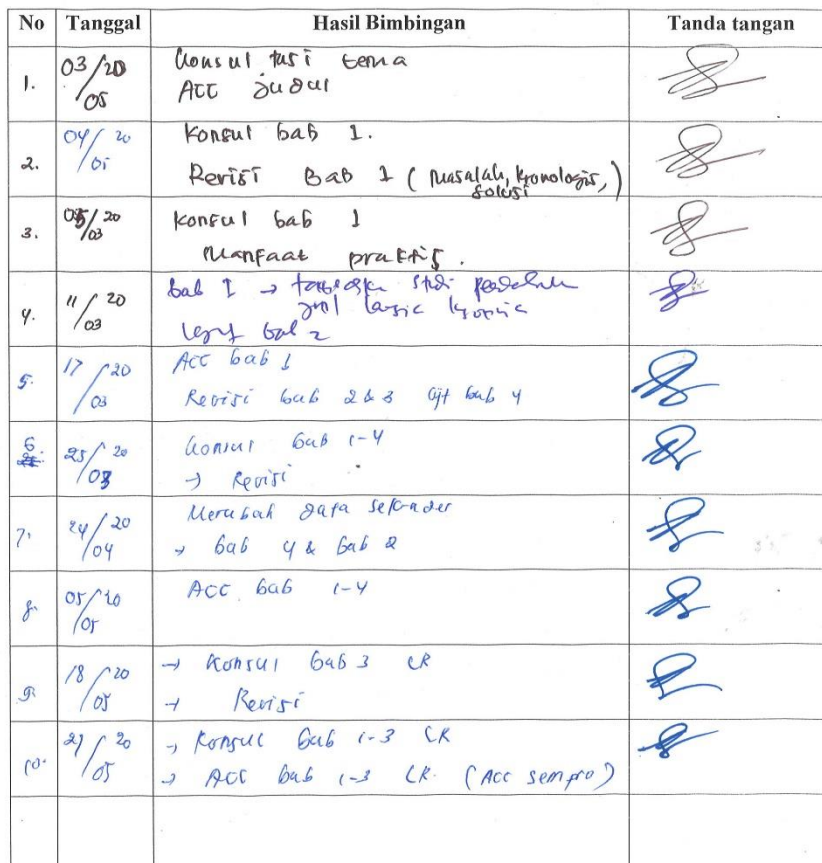 No Tanggal Hasil Bimbingan Tanda tangan
1. 03/20/05 Konsul tasi tema
ACC Judul
2. 04/20/05 Konsul bab 1.
Revisi Bab 1 (Masalah, kronologis, solusi)
3. 05/20/03 Konsul bab 1
Manfaat praktis.
4. 11/20/03 bab I → studi
bab 2
5. 17/20/03 ACC bab 1
Revisi bab 2 & 3 bab 4
6. 25/20/03 Konsul bab 1-4
→ Revisi
7. 24/20/04 Merubah data sekunder
→ bab 4 & bab 2
8. 05/20/05 ACC bab 1-4
9. 18/20/05 → Konsul bab 3 LR
→ Revisi
10. 27/20/05 → Konsul bab 1-3 LR
→ ACC bab 1-3 LR. (ACC sempro)